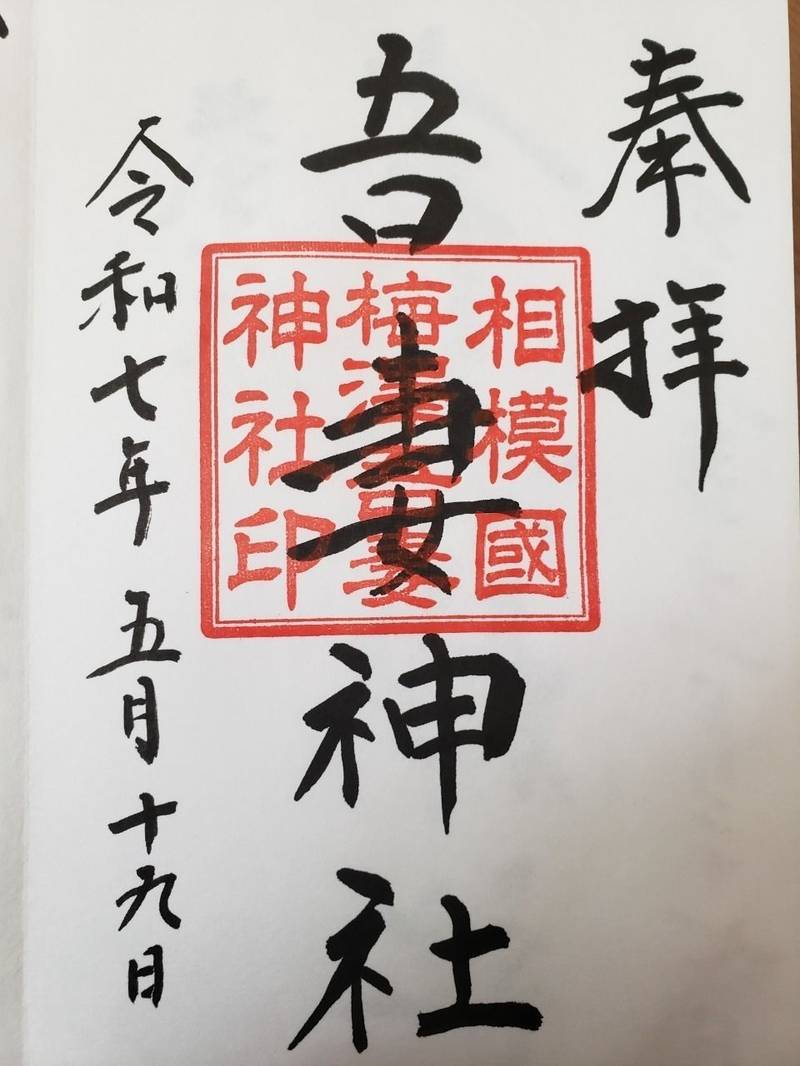 奉拝
吾妻神社
相模國
梅澤吾妻
神社印
令和七年五月十九日